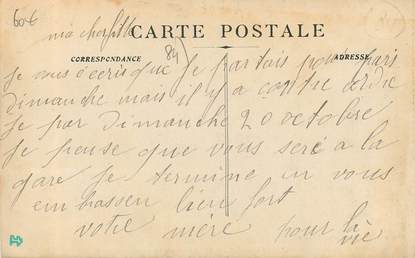 60€
ma cher fille
CARTE POSTALE
84)
CORRESPONDANCE
ADRESSE
Je vous écris que Je partais pour paris
Dimanche mais il y a contre ordre
Je par Dimanche 20 octobre
Je pense que vous seré a la
gare Je termine en vous
embrassen bien fort
votre mère pour la
vie